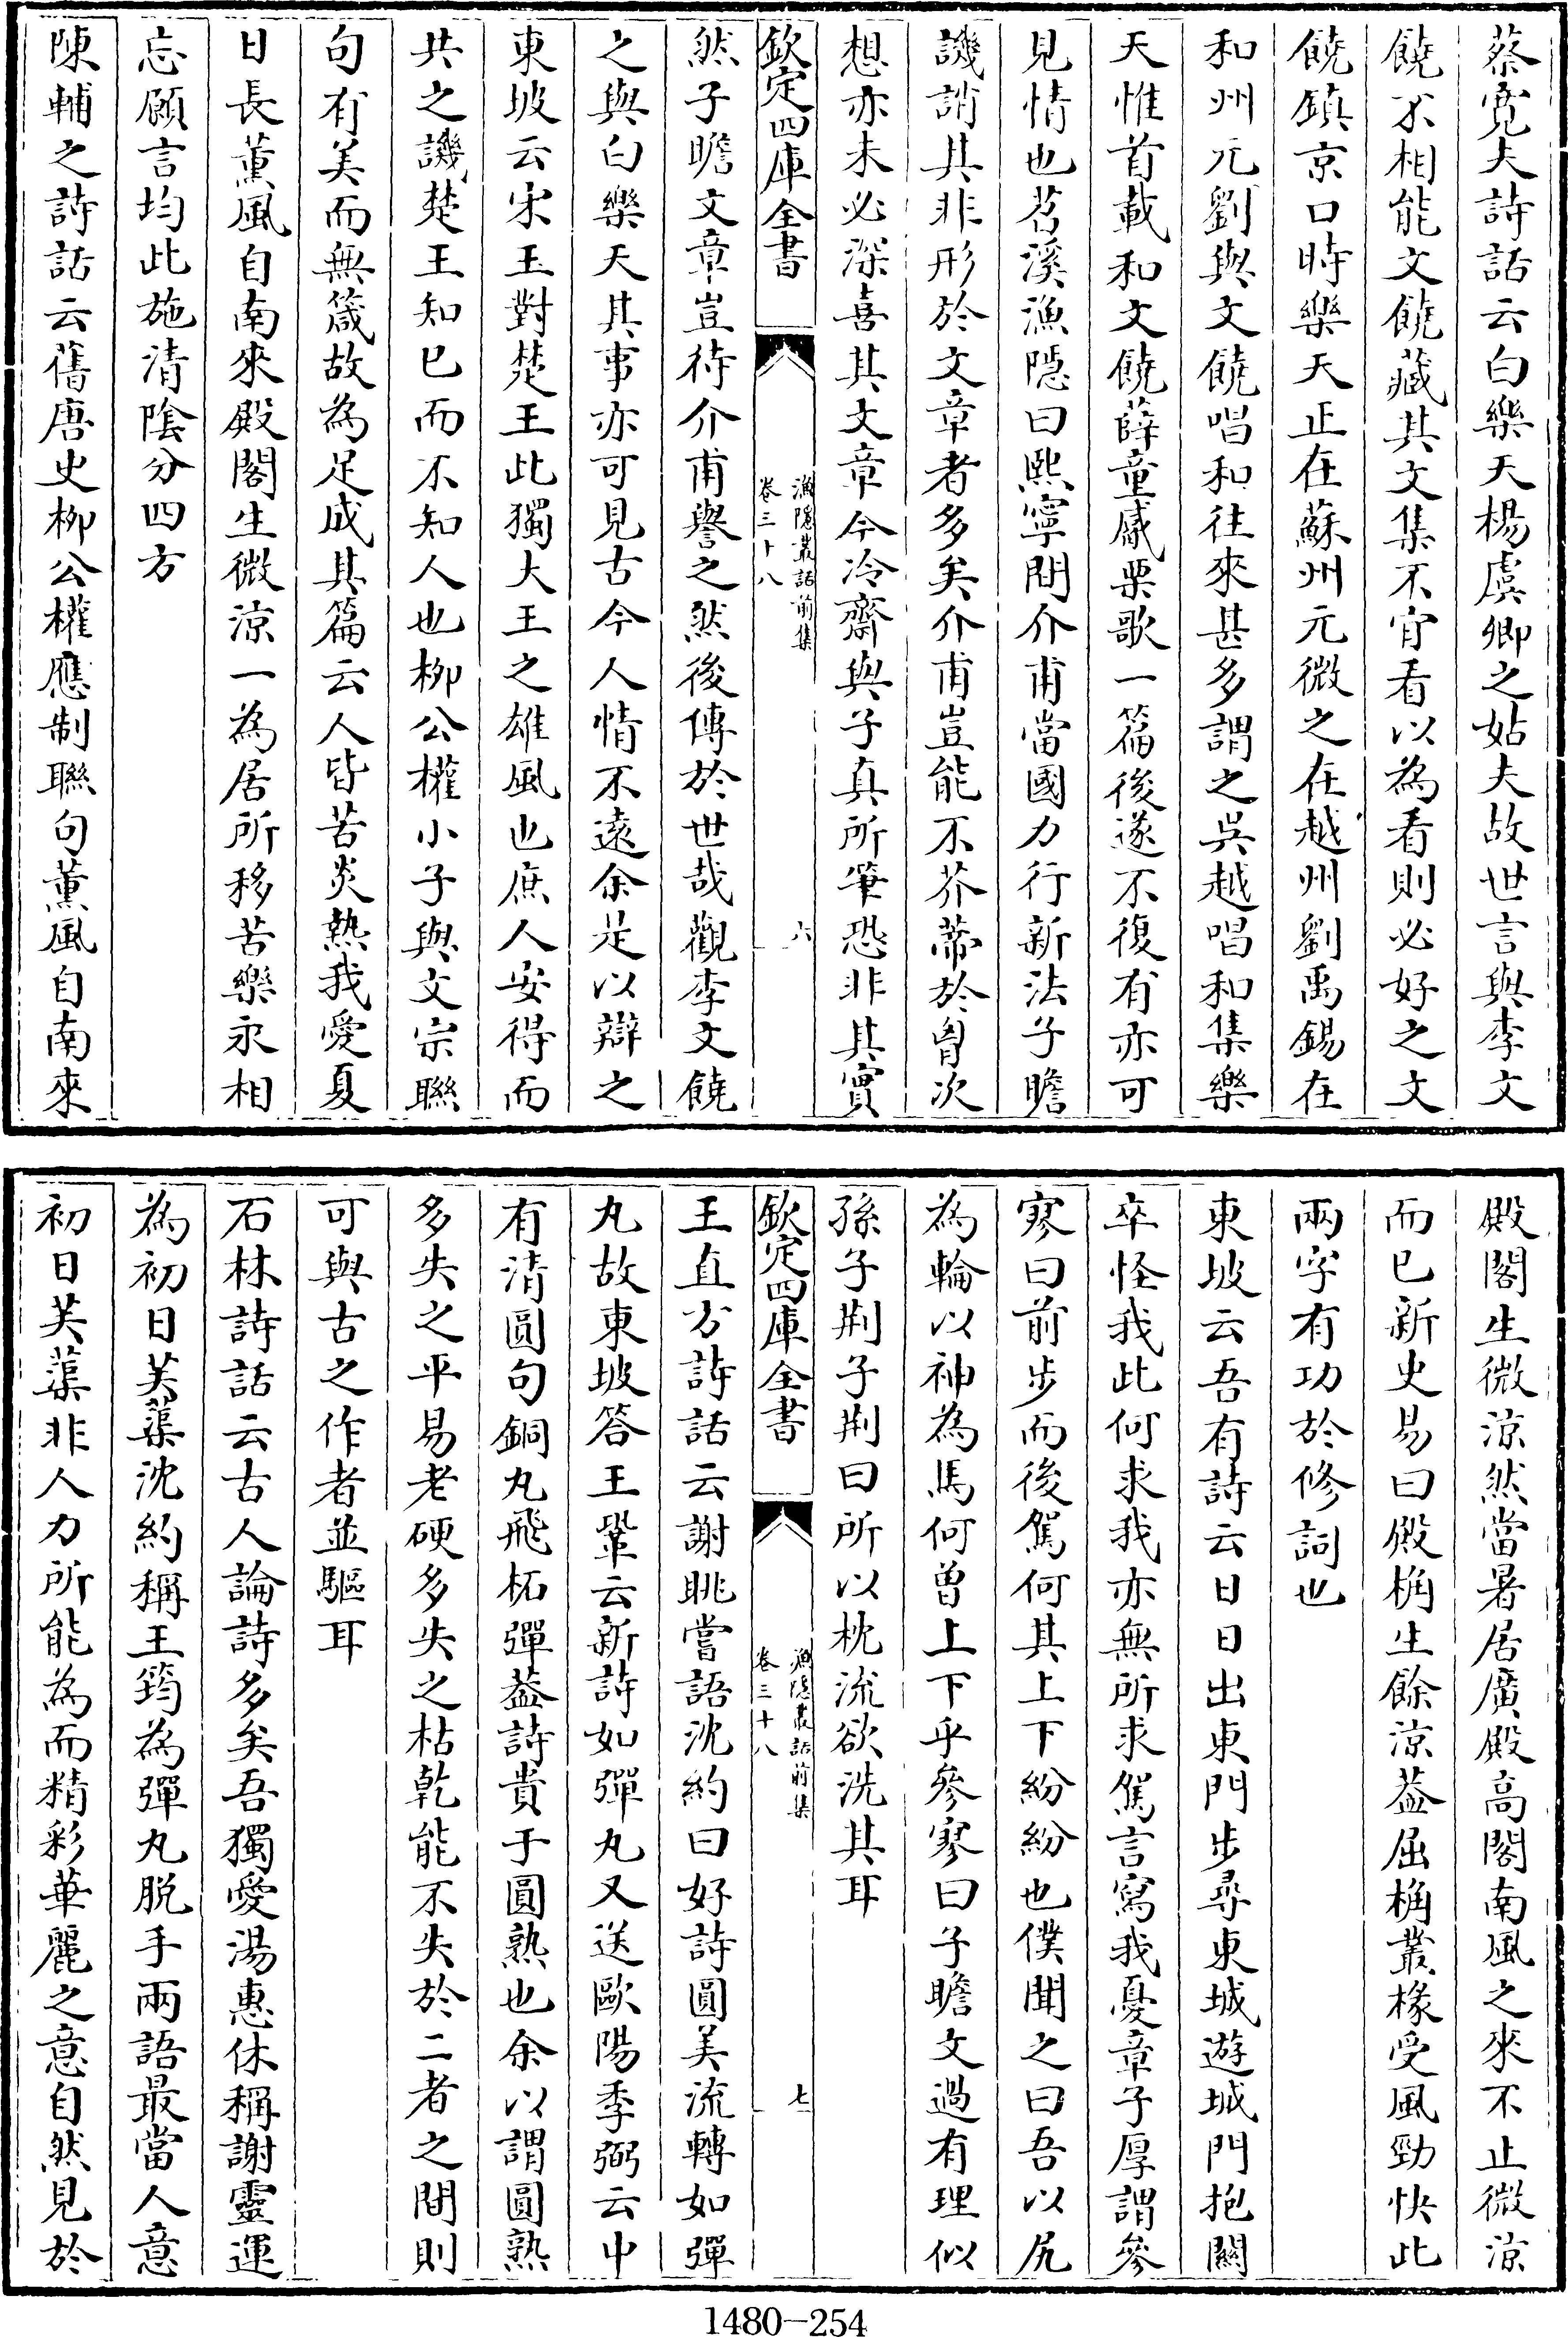 蔡寛夫詩話云白樂天楊虞卿之姑夫故世言與李文
饒不相能文饒藏其文集不肯看以為看則必好之文
饒鎮京口時樂天正在蘇州元微之在越州劉禹錫在
和州元劉與文饒唱和往來甚多謂之吳越唱和集樂
天惟首載和文饒薛童觱栗歌一篇後遂不復有亦可
見情也苕溪漁隠曰熙寧間介甫當國力行新法子瞻
譏誚其非形於文章者多矣介甫豈能不芥蔕於胷次
想亦未必深喜其文章今冷齋與子真所筆恐非其實
欽定四庫全書
漁隠叢話前集
卷三十八
六
然子瞻文章豈待介甫譽之然後傳於世哉觀李文饒
之與白樂天其事亦可見古今人情不逺余是以辯之
東坡云宋玉對楚王此獨大王之雄風也庶人安得而
共之譏楚王知已而不知人也栁公權小子與文宗聯
句有美而無箴故為足成其篇云人皆苦炎熱我愛夏
日長薫風自南來殿閣生微涼一為居所移苦樂永相
忘願言均此施清隂分四方
陳輔之詩話云舊唐史栁公權應制聯句薫風自南來
殿閣生微涼然當暑居廣殿高閣南風之來不止微涼
而已新史易曰殿桷生餘涼葢屈桷叢椽受風勁快此
兩字有功於修詞也
東坡云吾有詩云日日出東門步尋東城遊城門抱闗
卒怪我此何求我亦無所求駕言寫我憂章子厚謂參
寥曰前步而後駕何其上下紛紛也僕聞之曰吾以尻
為輪以神為馬何曽上下乎參寥曰子瞻文過有理似
孫子荆子荆曰所以枕流欲洗其耳
欽定四庫全書
漁隠叢話前集
卷三十八
七
王直方詩話云謝朓嘗語沈約曰好詩圓美流轉如彈
丸故東坡答王鞏云新詩如彈丸又送歐陽季弼云中
有清圓句銅丸飛柘彈葢詩貴于圓熟也余以謂圓熟
多失之平易老硬多失之枯乾能不失於二者之間則
可與古之作者並驅耳
石林詩話云古人論詩多矣吾獨愛湯惠休稱謝靈運
為初日芙蕖沈約稱王筠為彈丸脱手兩語最當人意
初日芙蕖非人力所能為而精彩華麗之意自然見於
1480-254